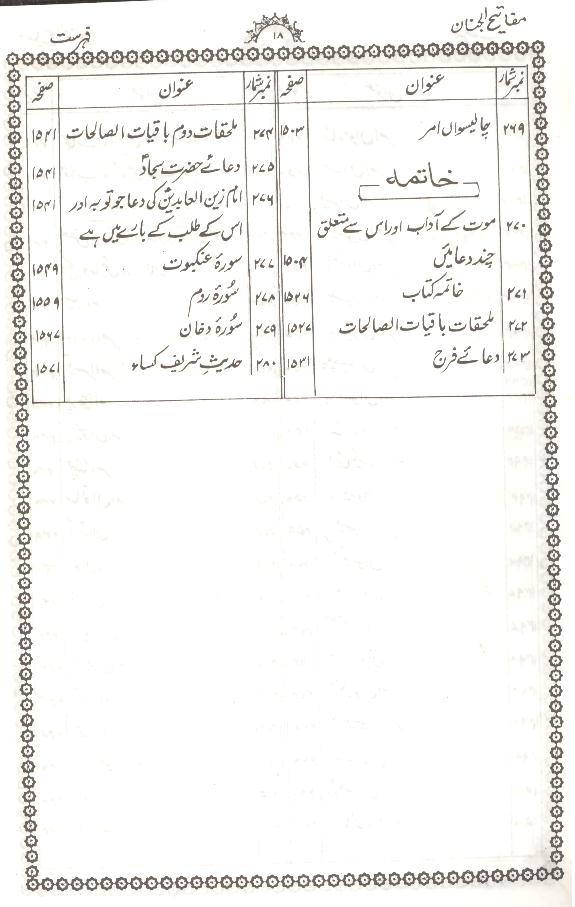 مفاتیح الجنان
۱۸
فہرست
نمبر شمار عنوان صفحہ
۲۶۹ چالیسواں امر ۱۵۰۳
خاتمہ
۲۷۰ موت کے آداب اور اس سے متعلق
چند دعائیں ۱۵۰۴
۲۷۱ خاتمہ کتاب ۱۵۲۶
۲۷۲ ملحقات باقیات الصالحات ۱۵۲۷
۲۷۳ دعائے فرج ۱۵۳۱
نمبر شمار عنوان صفحہ
۲۷۴ ملحقات دوم باقیات الصالحات ۱۵۴۱
۲۷۵ دعائے حضرت سجادؑ ۱۵۴۱
۲۷۶ امام زین العابدینؑ کی دعا جو توبہ اور ۱۵۴۱
اس کے طلب کے بارے میں ہے
۲۷۷ سورۂ عنکبوت ۱۵۴۹
۲۷۸ سُورۂ روم ۱۵۵۹
۲۷۹ سُورۂ دخان ۱۵۶۷
۲۸۰ حدیثِ شریف کساء ۱۵۷۱